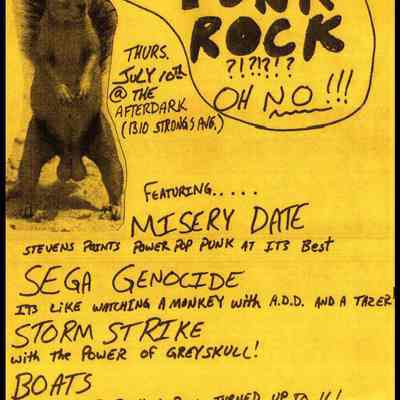 PUNK
ROCK
?!?!?!?
OH NO!!!
THURS.
JULY 10TH
@ THE
AFTERDARK
(1310 STRONGS AVE.)
FEATURING.....
MISERY DATE
STEVENS POINTS POWER POP PUNK AT ITS BEST
SEGA GENOCIDE
ITS LIKE WATCHING A MONKEY WITH A.D.D. AND A TAZER!
STORM STRIKE
with the POWER OF GREYSKULL!
BOATS
TURNED UP TO 11!